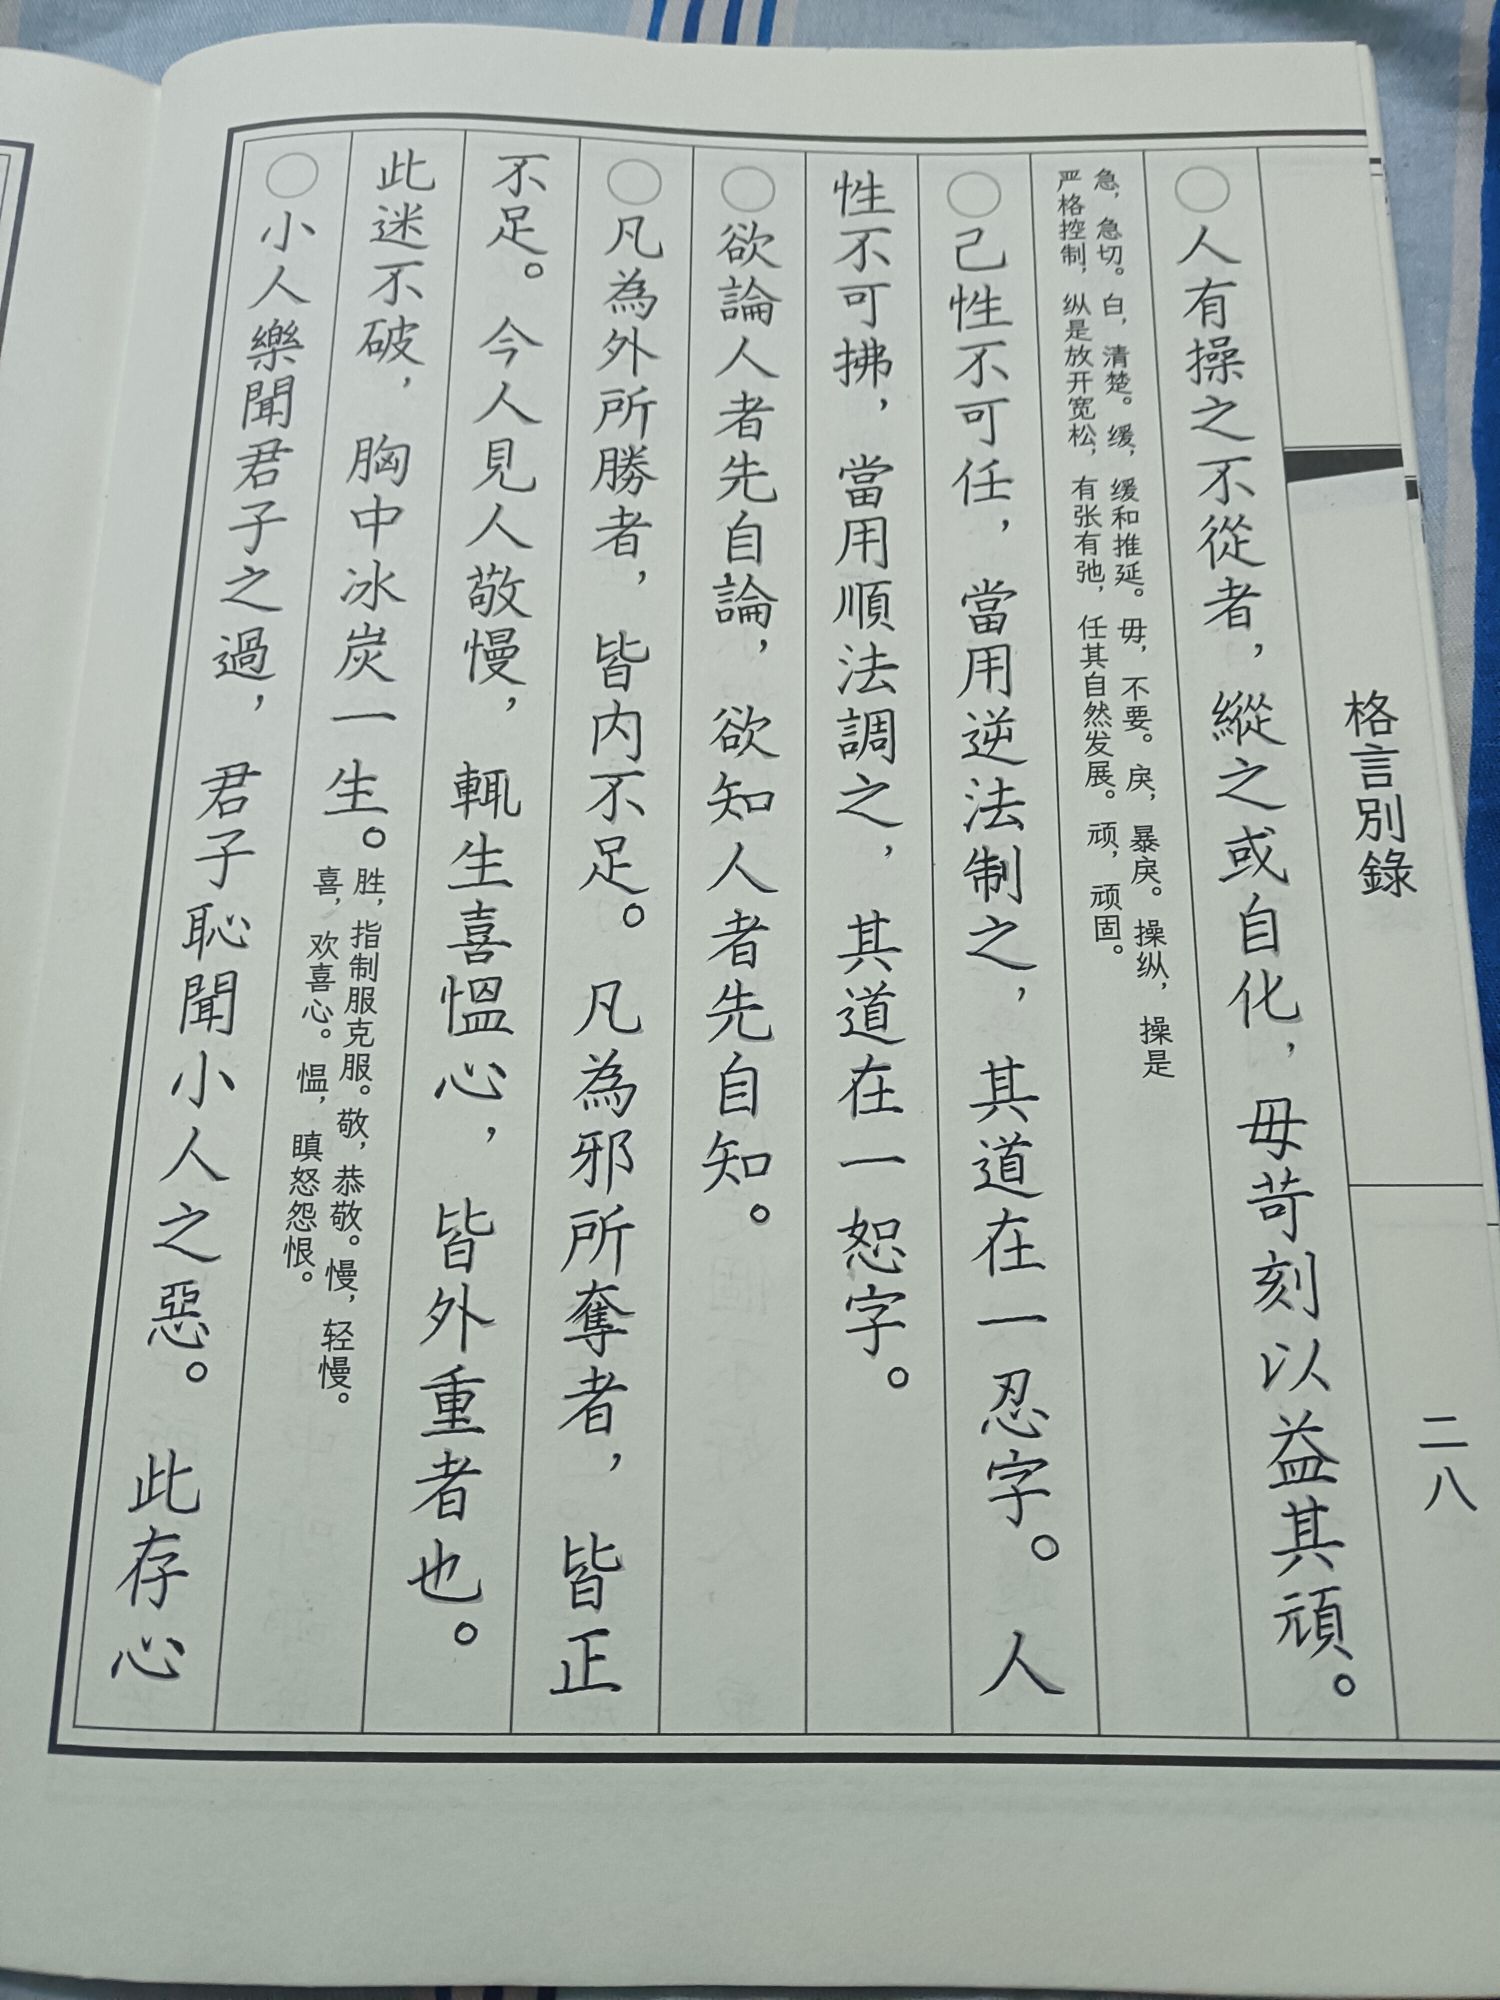 格言別錄
二八
〇人有操之不從者，縱之或自化，毋苛刻以益其頑。
急，急切。白，清楚。缓，缓和推延。毋，不要。戾，暴戾。操纵，操是
严格控制，纵是放开宽松，有张有弛，任其自然发展。顽，顽固。
〇己性不可任，當用逆法制之，其道在一忍字。人
性不可拂，當用順法調之，其道在一恕字。
〇欲論人者先自論，欲知人者先自知。
〇凡為外所勝者，皆內不足。凡為邪所奪者，皆正
不足。今人見人敬慢，輒生喜慍心，皆外重者也。
此迷不破，胸中冰炭一生。
胜，指制服克服。敬，恭敬。慢，轻慢。
喜，欢喜心。愠，瞋怒怨恨。
〇小人樂聞君子之過，君子恥聞小人之惡。此存心